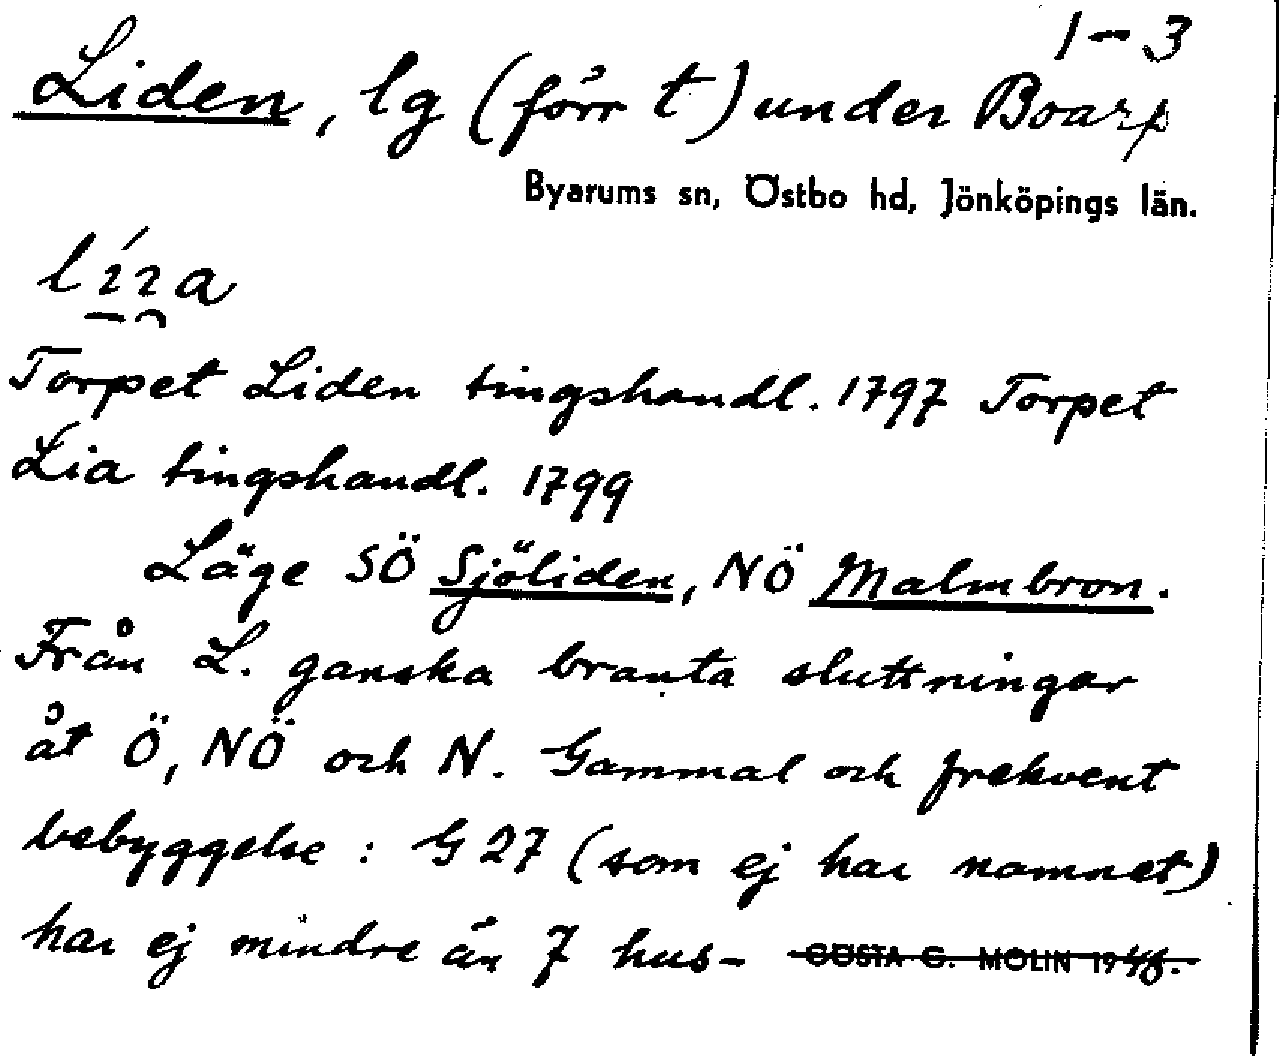 1-3
Liden, lg (förr t) under Boarp
Byarums sn, Östbo hd, Jönköpings län.
Torpet Liden tingshandl. 1797 Torpet
Lia tingshandl. 1799
Läge SÖ Sjöliden, NÖ Malmbron.
Från L. ganska branta sluttningar
åt Ö, NÖ och N. Gammal och frekvent
bebyggelse : G 27 (som ej har namnet)
har ej mindre än 7 hus-
GÖSTA G. MOLIN 1948.